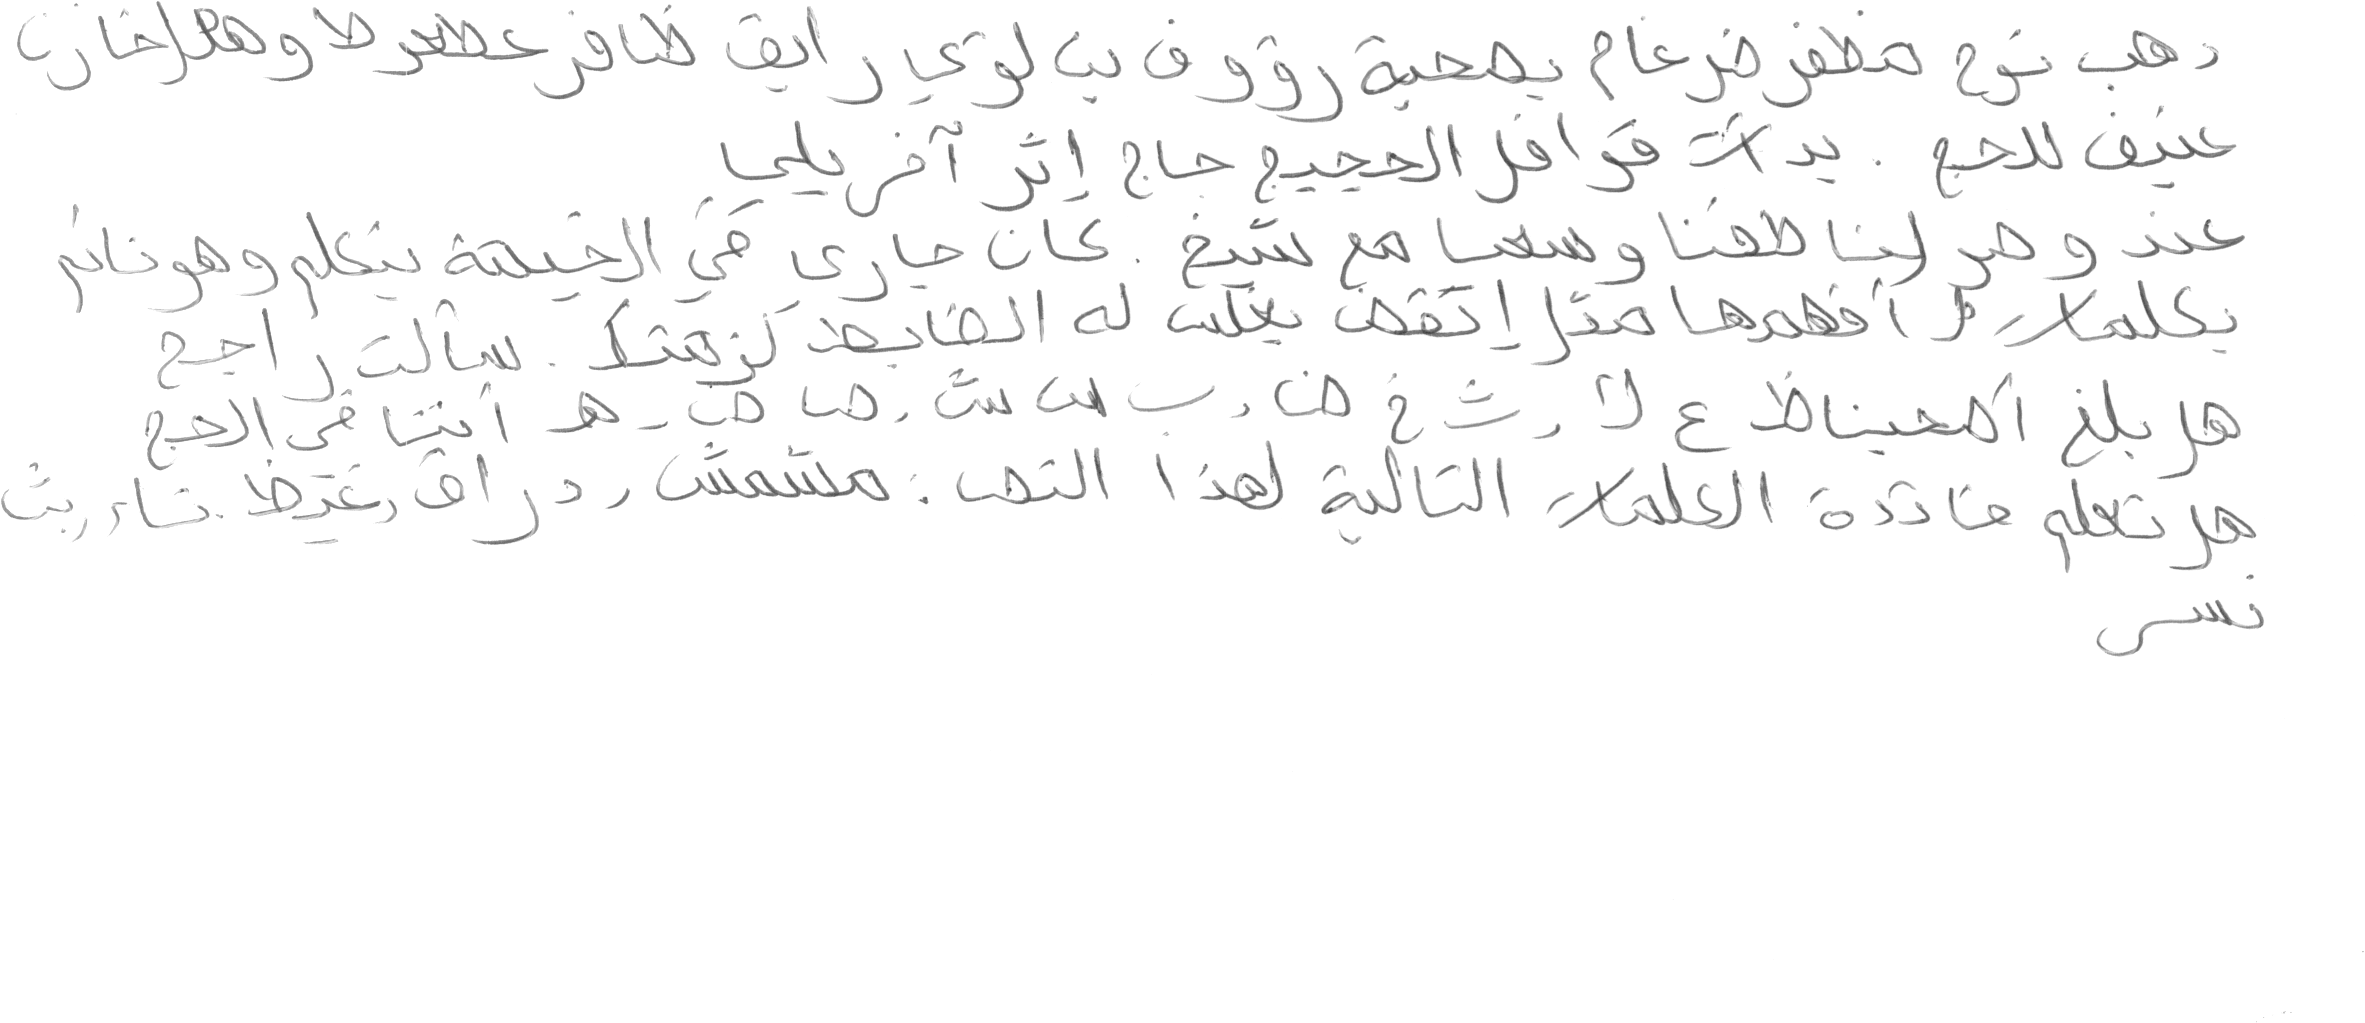 ذهب نوح مظفر ضرغام بصحبة رؤوف بن لؤي رايق ظافر عطعوط وهلال خازن
عفيف للحج . بدأت قوافل الحجيج حاج إثر آخر ملحا
عند وصولنا طفنا وسعينا مع شيخ . كان جاري في الخيمة يتكلم وهو نائم
بكلمات لا أفهمها مثل إنتفض بغلت له الضابط كزمتك . سألت راجح
هل بلغ أصعيناظ ع لا ، ث خ ض ، ب س ش ، ص ض ، هـ أيتها في الحج
هل تعلم ما فائدة الكلمات التالية لهذا النص : مشمش ، دراق ، غيظ ، تاء ، بث
نسر